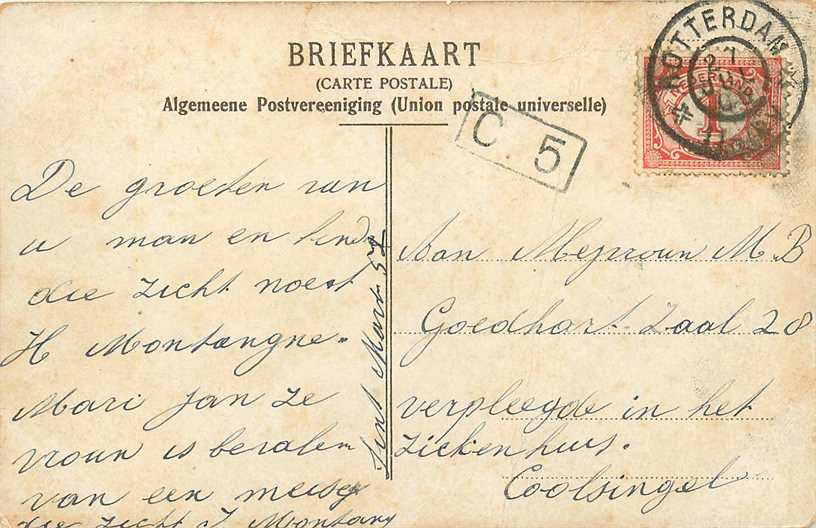 BRIEFKAART
(CARTE POSTALE)
Algemeene Postvereeniging (Union postale universelle)
ROTTERDAM
NEDERLAND
1
C 5
De groeten van
u man en
die zicht noest
H Montangne.
Mari Jan ze
vroun is beralen
van een meisg
die zicht J Montang
Sint Mars 52
Aan Mejvroun M B
Goedhart Zaal 28
verpleegde in het
ziekenhuis.
Coolsingel